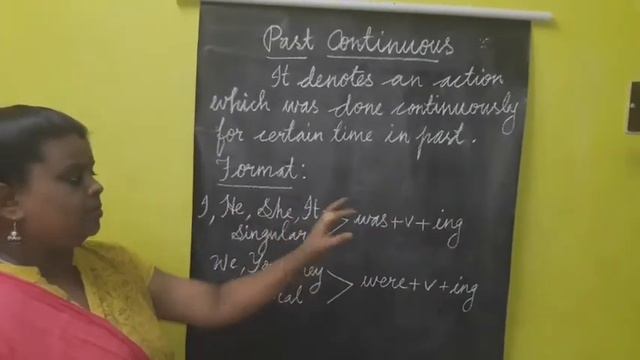 Past Continuous
It denotes an action
which was done continuously
for certain time in past.
Format:
I, He, She, It
Singular > was+v+ing
We,
> were+v+ing